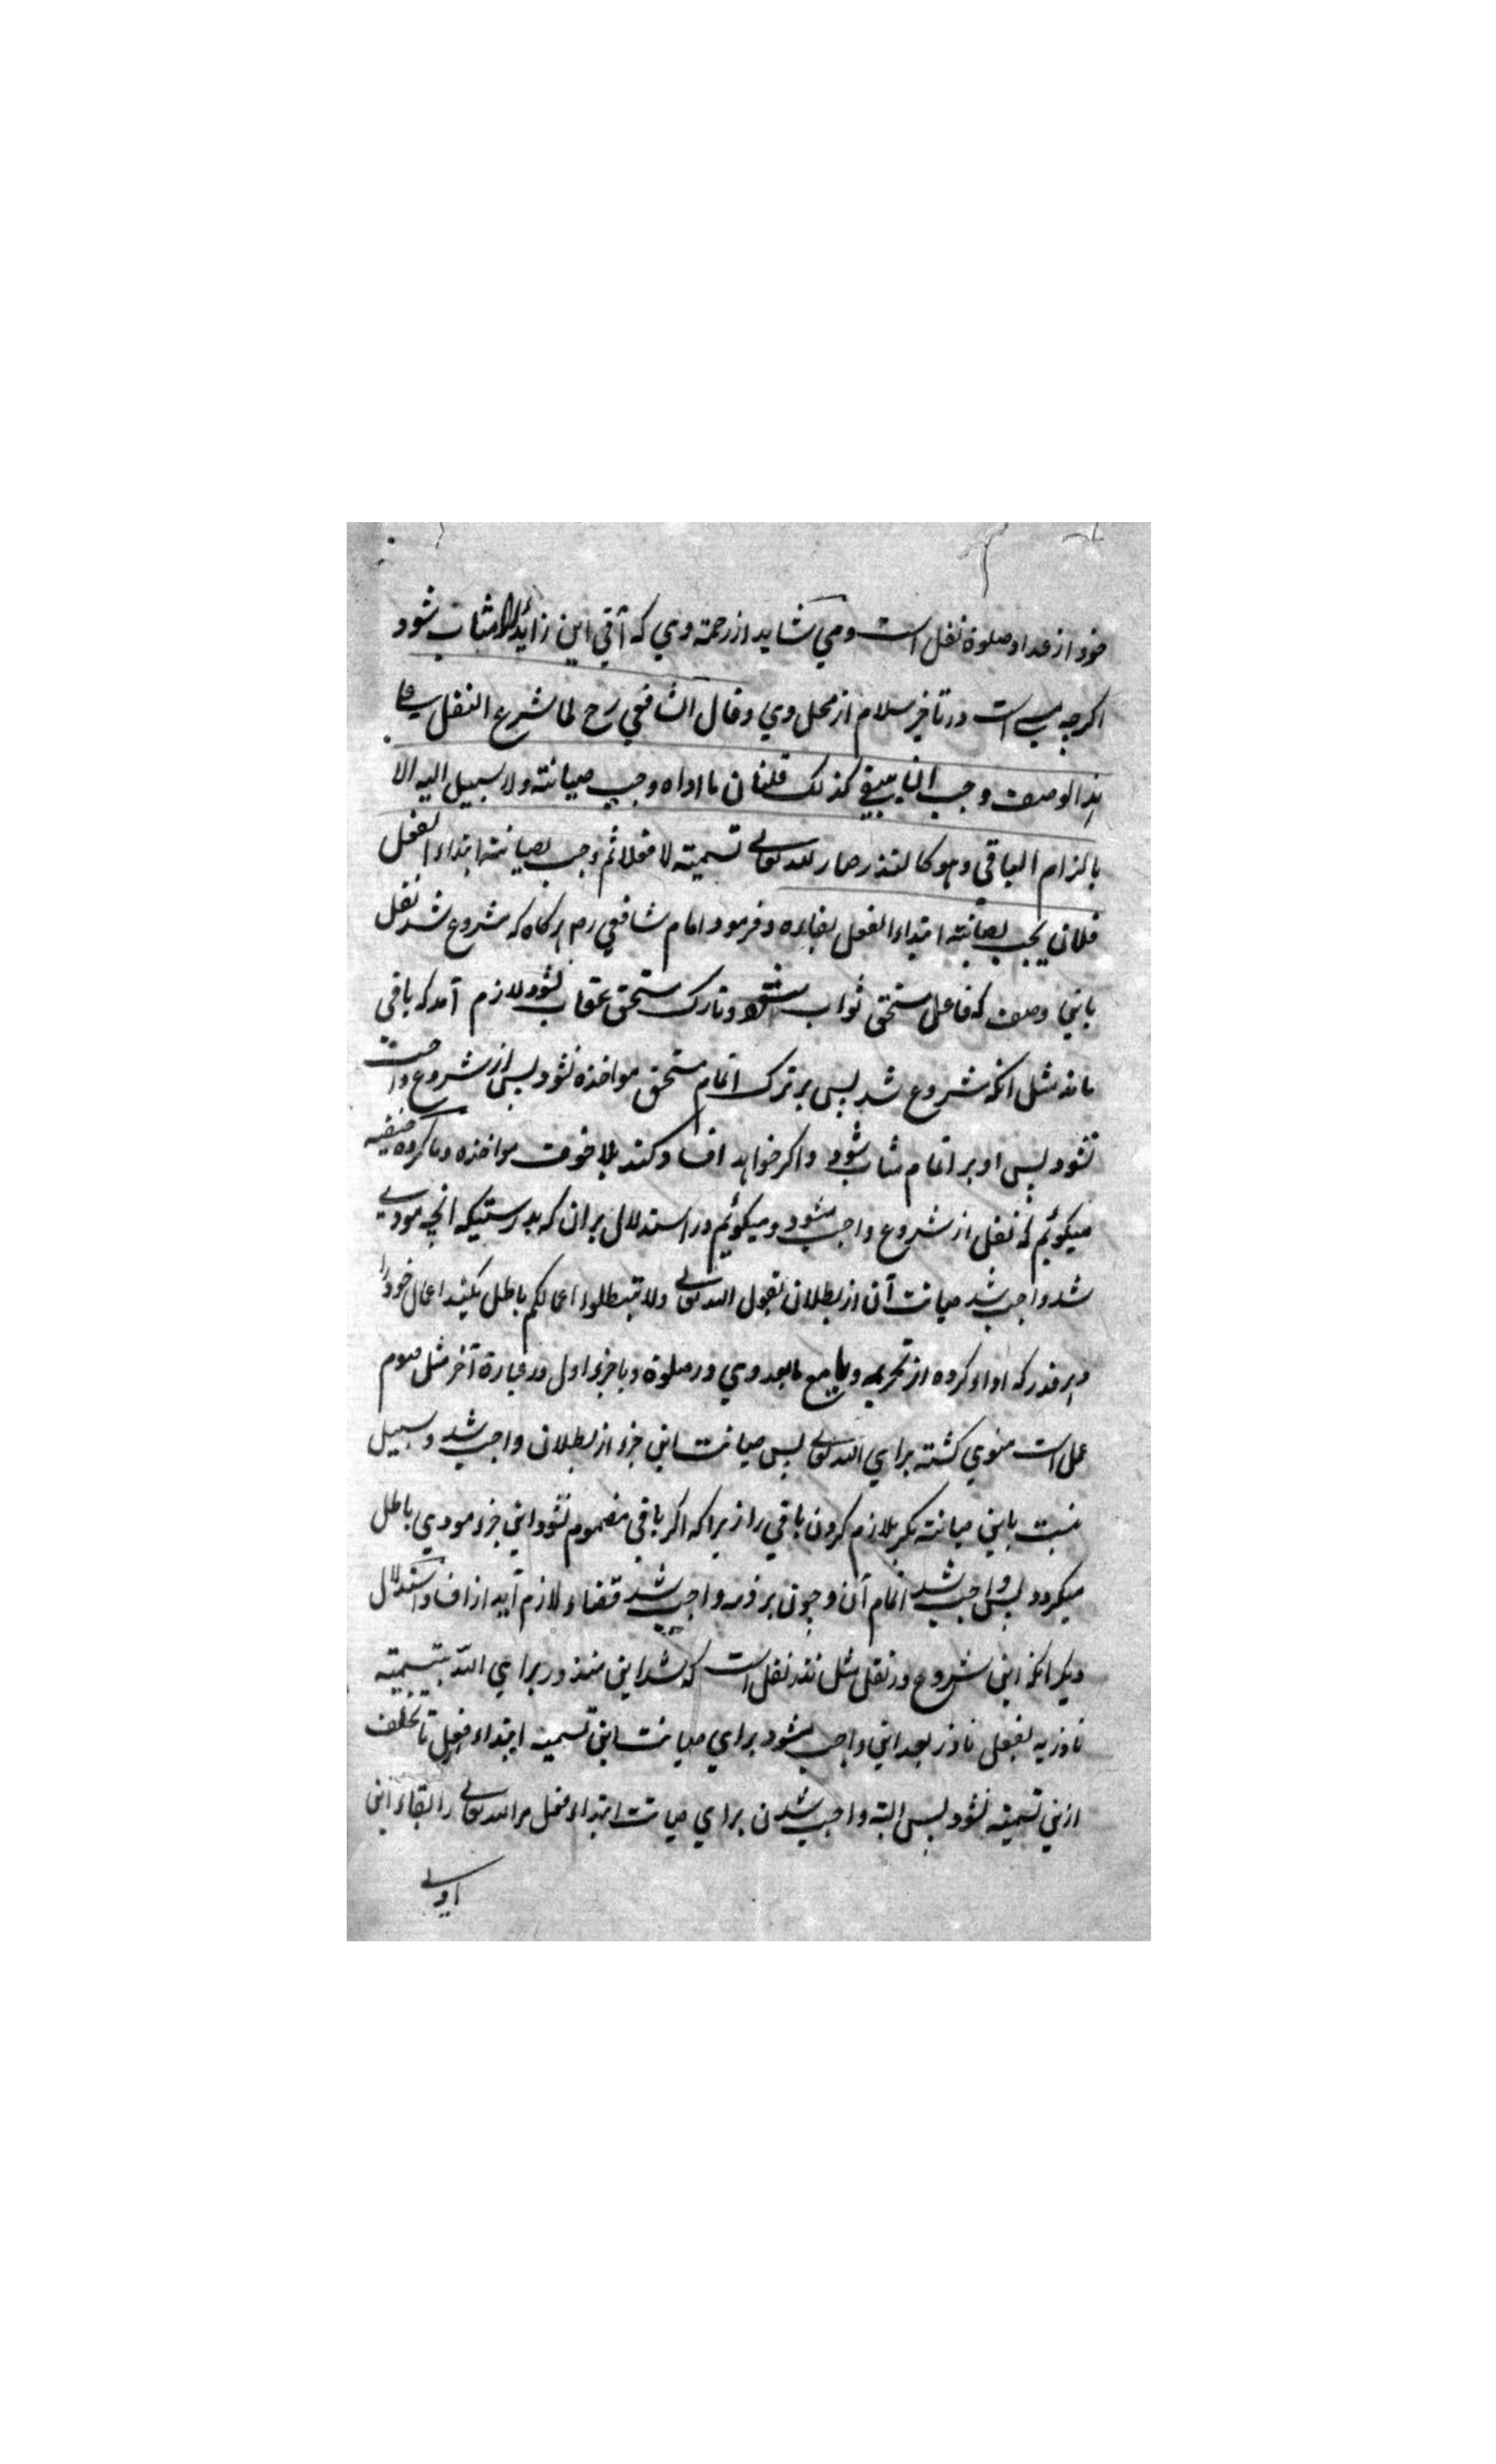 خود از عداد صلوة نفل است و می شاید از رحمة وي که آتي این زائد الا مثاب شود
اکرچه مسي است در تاخیر سلام از محل وي وقال الشافعي رح لما شرع النفل علي
هذا الوصف وجب ان یبقي کذلک قلنا ان ما اداه وجب صیانته ولا سبیل الیه الا
بالزام الباقي وهو کالنذر صار لله تعالي تسمیته لا فعلا ثم وجب لصیانته ابتداء الفعل
فلان یجب لصیانته ابتداء الفعل بقاؤه و فرمود امام شافعي رح هرکاه که مشروع شد نفل
باینی وصف که فاعل مستحق ثواب شود و تارک مستحق عقاب نشود لازم آمد که باقي
ماند مثل انکه مشروع شد پس بر ترک اتمام مستحق مواخذه نشود پس از شروع واجب
نشود پس او بر اتمام مثاب شود و اکر خواهد افساد کند بلا خوف مواخذه و ما کروه حنفیه
میکوئیم که نفل از شروع واجب میشود و میکوئیم در استدلال بران که بدرستیکه انچه مودي
شد واجب شد صیانت آن از بطلان بقول الله تعالي ولا تبطلوا اعمالکم باطل مکنید اعمال خود را
و هر قدر که اداء کرده از تحریمه و یا مع مابعد وي در صلوة و یا جزء اول در عبارة آخر مثل صوم
عمل است منوي کشته براي الله تعالي پس صیانت این جزء از بطلان واجب شد و سبیل
نیست باین صیانته مکر بلازم کردن باقي را زیراکه اکر باقي مضموم نشود این جزء مودي باطل
میکردد پس واجب شد اتمام آن و چون بر ذمه واجب شد قضاء لازم آید از افساد استدلال
دیکر انکه این شروع در نفل مثل نذر نفل است که شد این منذور براي الله بتسمیته
ناذر نه بفعل ناذر بعد این واجب میشود براي صیانت این تسمیه ابتداء فعل تا تخلف
ازین تسمیته نشود پس البته واجب شدن براي صیانت ابتداء فعل مر الله تعالي را بقاء این
اولي